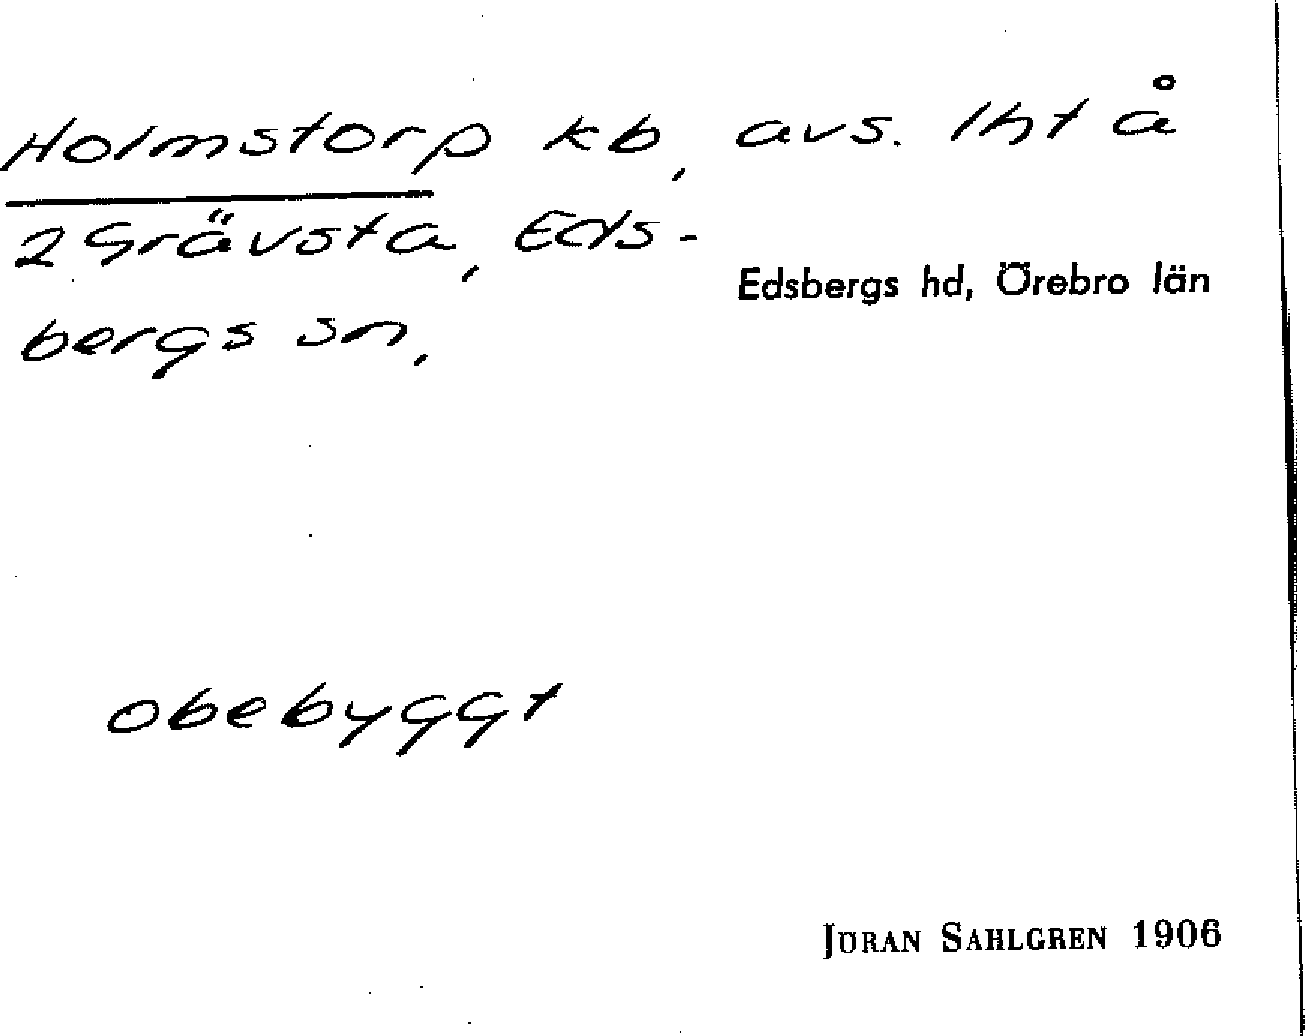 Holmstorp kb, avs. lht å
2 Grävsta, Eds-
Edsbergs hd, Örebro län
bergs sn,
obebyggt
JÖRAN SAHLGREN 1906